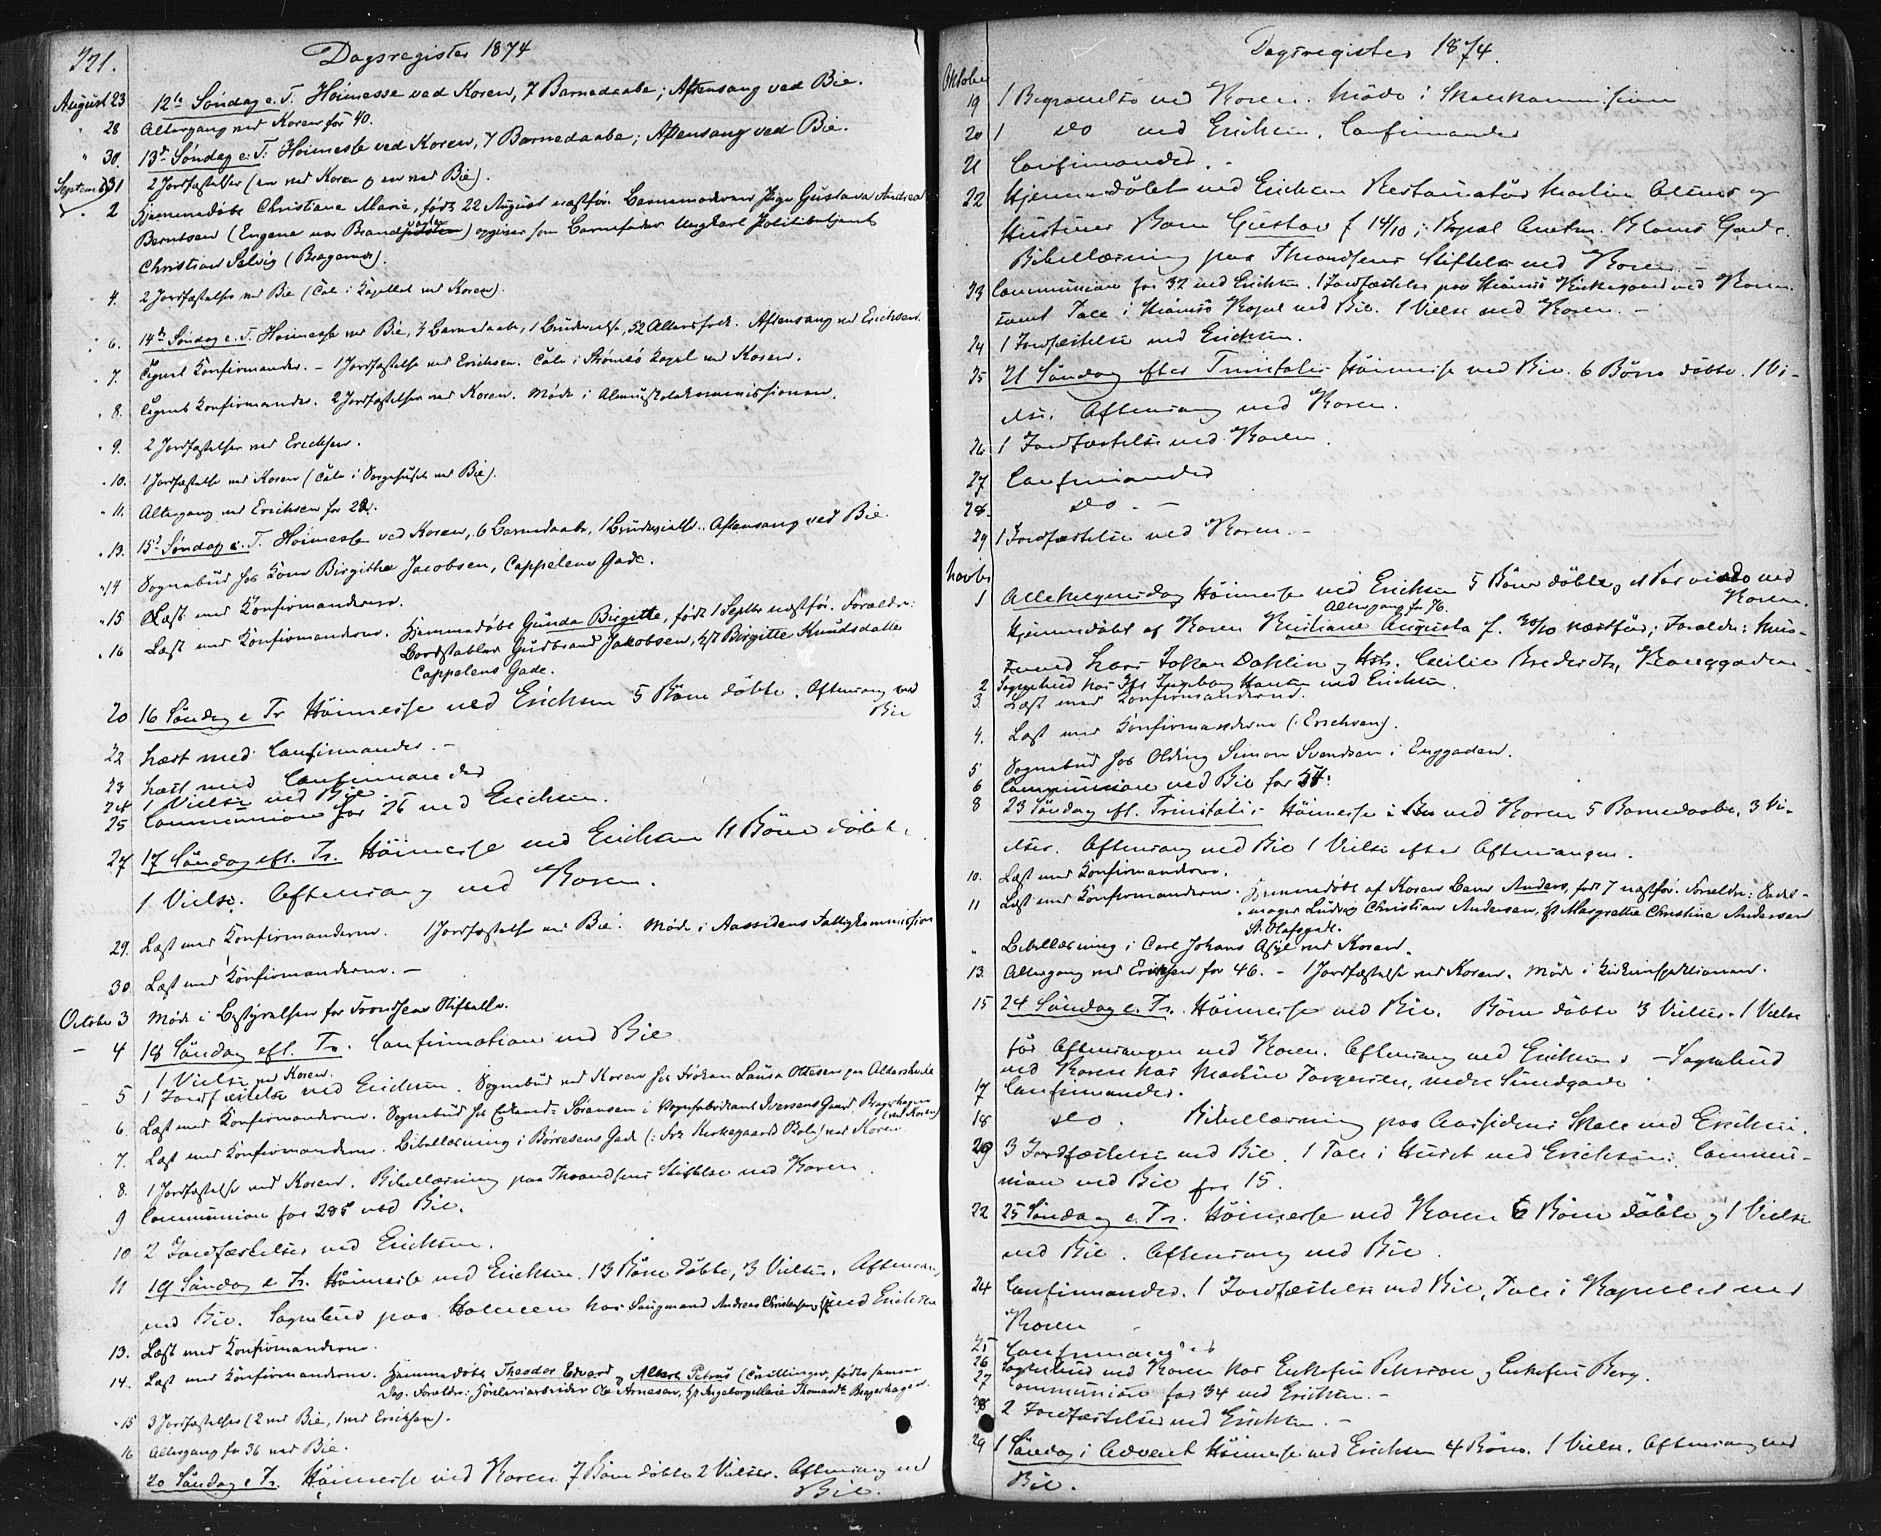 321.
Dagsregister 1874
August 23 12te Søndag e. T. Høimesse ved Koren, 7 Barnedaabe; Aftensang ved Bie.
" 28 Altergang ved Koren for 40.
" 30. 13de Søndag e. T. Høimesse ved Koren, 7 Barnedaabe; Aftensang ved Bie.
31 2 Jordfæstelser (en ved Koren og en ved Bie).
Septemb. 2 Hjemmedøbt Christiane Marie, født 22 August næstfør. Barnemoderen Pige Gustava Andrea
Berntsen (Engene) opgiver som Barnefader Ungkarl Politibetjent
Christian Salvig (Bragernæs).
4. 2 Jordfæstelser ved Bie (Tale i Kapellet ved Koren).
" 6. 14de Søndag e. T. Høimesse ved Bie, 7 Barnedaabe, 1 Brudevielse, 52 Altersfolk. Aftensang ved Erichsen.
" 7. Tegnet Konfirmander. – 1 Jordfæstelse ved Erichsen. Tale i Strømsø Kapel ved Koren.
" 8. Tegnet Konfirmander. 2 Jordfæstelser ved Koren. Møde i Almueskolekommissionen.
" 9. 2 Jordfæstelser ved Erichsen.
" 10. 1 Jordfæstelse ved Koren (Tale i Sørgehuset ved Bie).
" 11. Altergang ved Erichsen for 22.
" 13. 15de Søndag e. T. Høimesse ved Koren, 6 Barnedaabe, 1 Brudevielse. Aftensang ved Bie.
" 14 Sognebud hos Kone Birgithe Jacobsen, Cappelens Gade.
" 15 Læst med Konfirmanderne.
" 16 Læst med Konfirmanderne. Hjemmedøbt Gunda Birgitte, født 1 Septbr næstfør. Forældre:
Bordstabler Gudbrand Jakobsen, Hst Birgitte Knudsdatter
Cappelens Gade.
20 16 Søndag e Tr Høimesse ved Erichsen 5 Børn døbte. Aftensang ved
Bie
22 Læst med Confirmander. –
23 Læst med Confirmander
24 1 Vielse ved Bie
25 Communion for 26 ved Erichsen.
27 17 Søndag eft. Tr. Høimesse ved Erichsen 11 Børn døbte.
1 Vielse. Aftensang ved Koren.
29. Læst med Konfirmanderne. 1 Jordfæstelse ved Bie. Møde i Aassidens Fattigkommission
30. Læst med Konfirmanderne. –
October 3 Møde i Bestyrelsen for Trondsens Stiftelse.
– 4 18 Søndag eft. Tr. Confirmation ved Bie
1 Vielse ved Koren.
5 1 Jordfæstelse ved Erichsen. Sognebud ved Koren hos Frøken Laura Ottesen
6. Læst med Konfirmanderne. Sognebud hos Sørensen i Vognfabrikant Iversens Gaard, Bragerhagen (ved Koren)
7. Læst med Konfirmanderne. Bibellæsning i Børresens Gade (: Frk Kirkegaards Skole) ved Koren
8. 1 Jordfæstelse ved Koren. Bibellæsning paa Thrandsens Stiftelse ved Koren.
9 Communion for 25 ved Bie.
10 2 Jordfæstelser ved Erichsen.
11 19 Søndag e Tr. Høimesse ved Erichsen. 13 Børn døbte, 3 Vielser. Aftensang
ved Bie. Sognebud paa Holmen hos Saugmand Andreas Christensen ved Erichsen
13. Læst med Konfirmanderne.
14. Læst med Konfirmanderne. Hjemmedøbt Theodor Edvard og Albert Petrus (Tvillinger, fødte samme
Dag. Forældre: Ole Arnesen, Hst Ingeborg Marie Thomasdt. Bragerhagen.
" 15 3 Jordfæstelser (2 ved Bie, 1 ved Erichsen).
16 Altergang for 36 ved Bie.
20 Søndag e Tr. Høimesse ved Koren 7 Børn døbte 2 Vielser. Aftensang ved
Bie.
Dagsregister 1874.
Oktober
19 1 Begravelse ved Koren. Møde i Skolekommissionen
20 1 do ved Erichsen. Confirmander
21 Confirmander. –
22 Hjemmedøbt ved Erichsen Restauratør Martin og
Hustrues Barn Gustav f 14/10; Gade.
Bibellæsning paa Thrandsens Stiftelse ved Koren. –
23 Communion for 32 ved Erichsen. 1 Jordfæstelse paa Strømsø Kirkegaard ved Koren
samt Tale i Strømsø Kapel ved Bie. 1 Vielse ved Koren. –
24 1 Jordfæstelse ved Erichsen.
25 21 Søndag efter Trinitatis Høimesse ved Bie. 6 Børn døbte. 1 Vi-
else. Aftensang ved Koren.
26 1 Jordfæstelse ved Koren.
27 Confirmander
28. do. –
29 1 Jordfæstelse ved Koren. –
Novbr
1 Allehelgensdag Høimesse ved Erichsen 5 Børn døbte, et Par viede ved
Koren.
Altergang for 76.
Hjemmedøbt af Koren Kristiane Augusta f. 30/10 næstfør; Forældre: Mur-
svend Lars Johan Dahlin og Hst. Cecilie
2 Sognebud hos Ingeborg Hansen ved Erichsen.
3. Læst med Konfirmanderne.
4. Læst med Konfirmanderne (: Erichsen).
5 Sognebud hos Olding Simon Svendsen i Enggaden.
6 Communion ved Bie for 54.
8 23 Søndag eft. Trinitatis Høimesse ved Koren 5 Barnedaabe, 3 Vi-
elser. Aftensang ved Bie 1 Vielse efter Aftensangen.
10. Læst med Konfirmanderne.
11 Læst med Konfirmanderne. Hjemmedøbt af Koren Barn Anders, født 7 næstfør. Forældre: Sadel-
mager Ludvig Christian Andersen, Hst Margrethe Christine Andersen
St. Olafsgade.
" Bibellæsning i Carl Johans Asyl ved Koren.
13. Altergang ved Erichsen for 46. – 1 Jordfæstelse ved Koren. Møde i Kirkeinspektionen.
15 24 Søndag e. Tr. Høimesse ved Bie. Børn døbte 3 Vielser. 1 Vielse
før Aftensangen ved Koren. Aftensang ved Erichsen. – Sognebud
ved Koren hos Torgersen, nedre Sundgade.
17 Confirmander.
18 do. Bibellæsning paa Aassidens Skole ved Erichsen.
20 3 Jordfæstelse ved Bie. 1 Tale i Huset ved Erichsen. Commu-
nion ved Bie for 15.
22 25 Søndag e. Tr. Høimesse ved Koren 6 Børn døbte og 1 Vielse
ved Bie. Aftensang ved Bie.
24 Confirmander. 1 Jordfæstelse ved Bie, Tale i Kapellet ved
Koren
25 Confirmander
26 Sognebud ved Koren hos Enkefru Peterson og Enkefru Berg.
27 Communion for 34 ved Erichsen. –
28 2 Jordfæstelser ved Erichsen. –
29 1 Søndag i Advent Høimesse ved Erichsen 4 Børn. 1 Vielse. Aftensang ved
Bie.